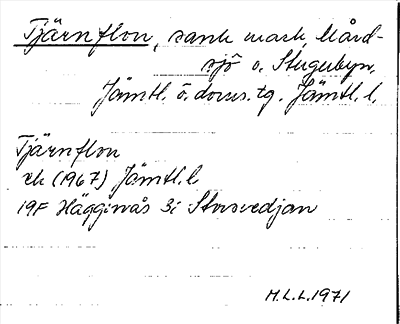 Tjärnflon, sank mark Mård-
sjö o. Stugubyn,
Jämtl. ö. doms. tg. Jämtl. l.
Tjärnflon
ek (1967) Jämtl. l
19F Häggenås 3i Storsvedjan
H.L.L. 1971